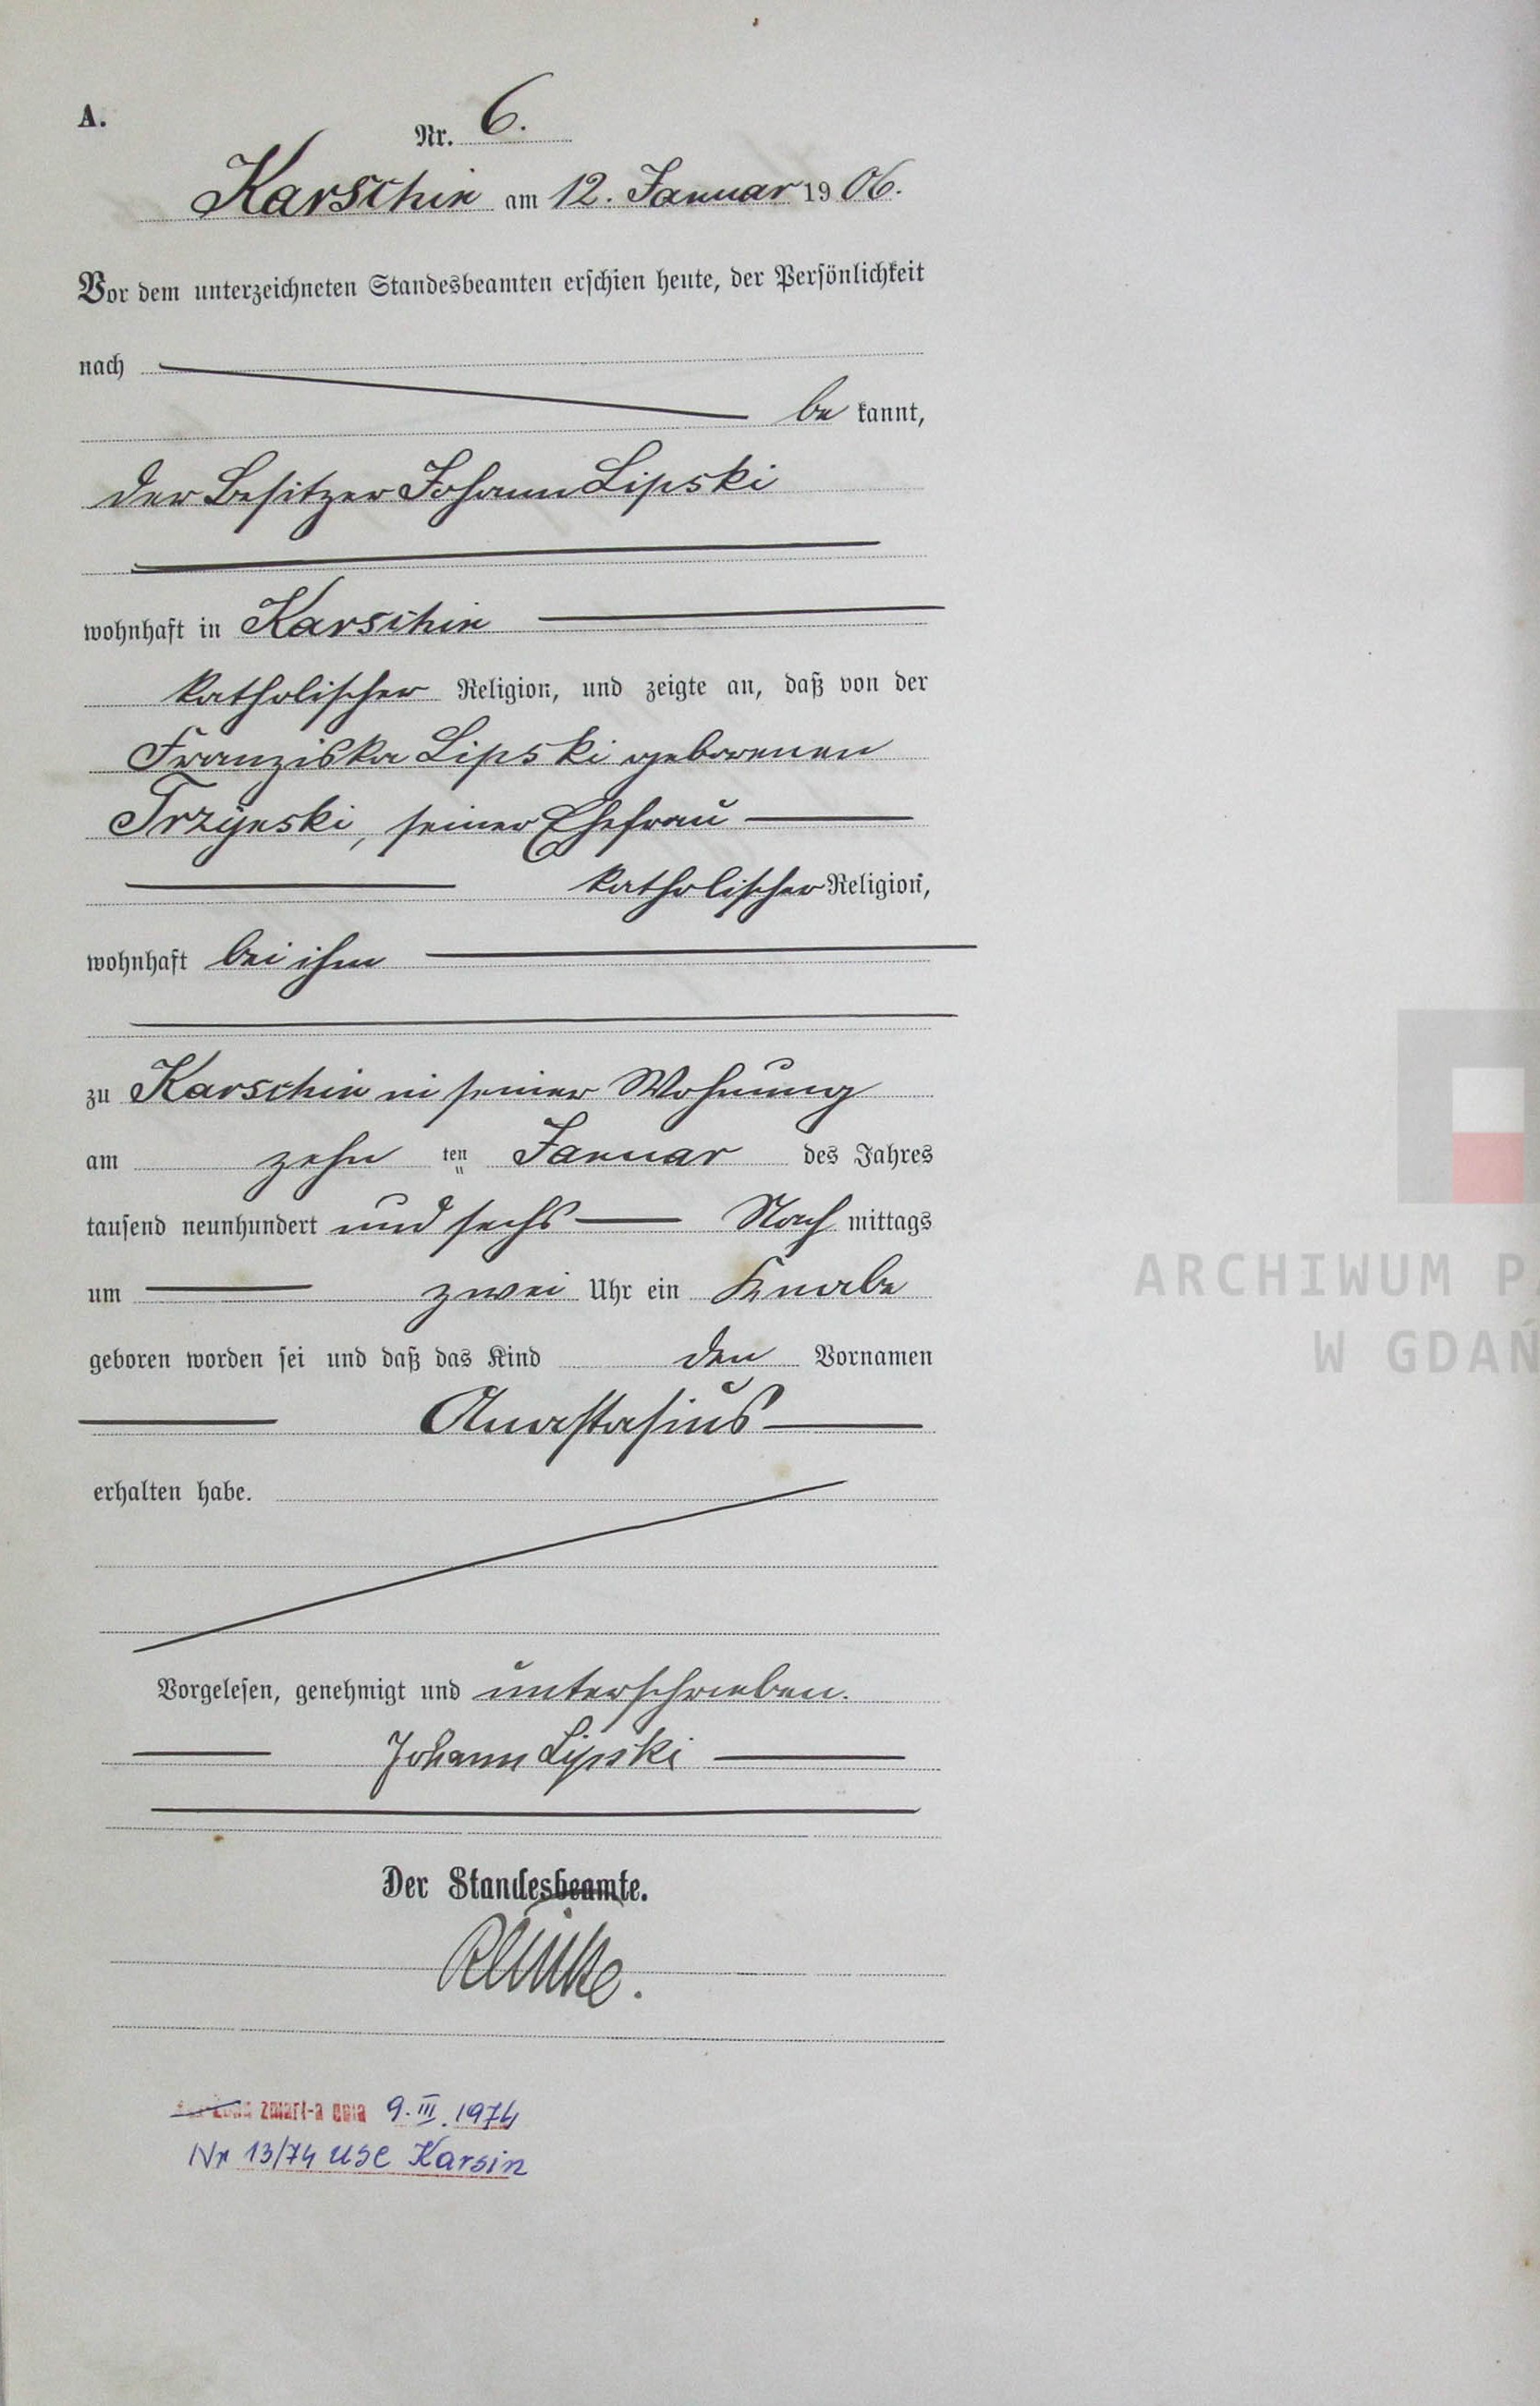 A.
Nr. 6.
Karschin am 12. Januar 1906.
Vor dem unterzeichneten Standesbeamten erschien heute, der Persönlichkeit
nach
be kannt,
der Besitzer Johann Lipski
wohnhaft in Karschin
katholischer Religion, und zeigte an, daß von der
Franziska Lipski geborenen
Trzynski, seiner Ehefrau
katholischer Religion,
wohnhaft bei ihm
zu Karschin in seiner Wohnung
am zehn ten Januar des Jahres
tausend neunhundert und sechs Nach mittags
um zwei Uhr ein Knabe
geboren worden sei und daß das Kind den Vornamen
Anastasius
erhalten habe.
Vorgelesen, genehmigt und unterschrieben.
Johann Lipski
Der Standesbeamte.
zmarł-a dnia 9.III.1974
Nr 13/74 USC Karsin
ARCHIWUM P
W GDAŃ